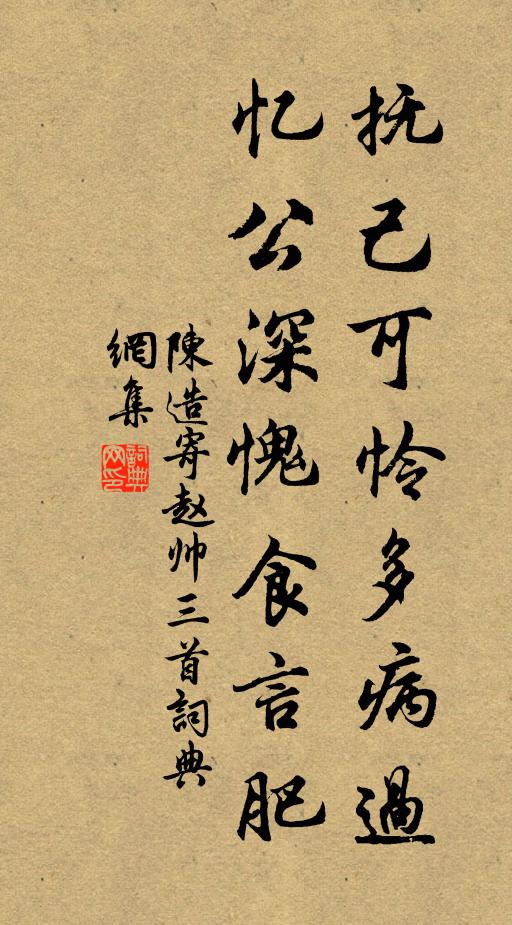 抚己可怜多病过
忆公深愧食言肥
陳造寄赵帅三首詞典
網集
詞典
网印